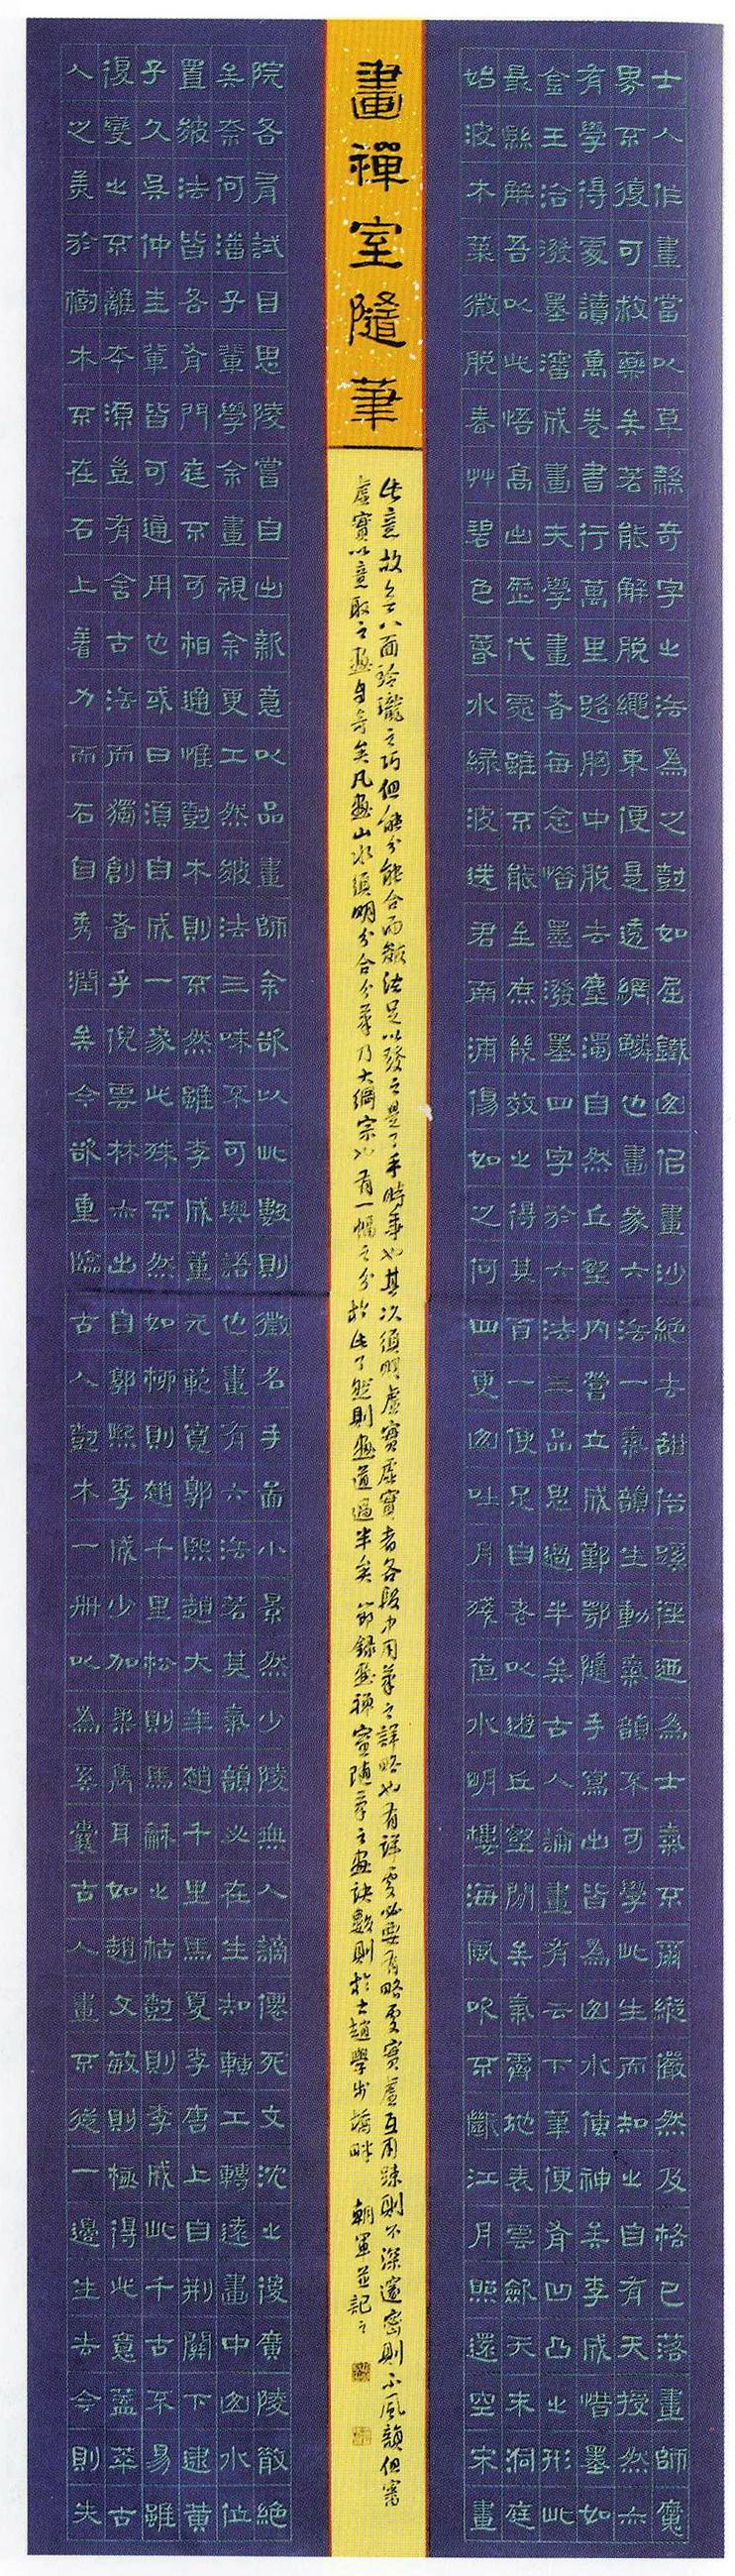 畫禪室隨筆
士人作畫當以草隸奇字之法為之樹如屈鐵山侣畫沙絕去甜俗蹊徑迺為士氣不爾縱儼然及格已落畫師魔
界不復可救藥矣若能解脫繩束便是透網鱗也畫家六法一氣韻生動氣韻不可學此生而知之自有天授然亦
有學得處讀萬卷書行萬里路胸中脫去塵濁自然丘壑內營立成鄞鄂隨手寫出皆為山水傳神矣李成惜墨如
金王洽潑墨瀋成畫夫學畫者每念惜墨潑墨四字於六法三品思過半矣古人論畫有云下筆便有凹凸之形此
最懸解吾以此悟高出歷代處雖不能至庶幾效之得其百一便足自老以遊丘壑閒矣氣霽地表雲斂天末洞庭
始波木葉微脫春艸碧色春水綠波送君南浦傷如之何四更山吐月殘夜水明樓海風吹不斷江月照還空宋畫
院各有試目思陵嘗自出新意以品畫師余欲以此數則徵名手啚小景然少陵無人謫僊死文沈之後廣陵散絕
矣奈何潘子輩學余畫視余更工然皴法三昧不可與語也畫有六法若其氣韻必在生知轉工轉遠畫中山水位
置皴法皆各有門庭不可相通惟樹木則不然雖李成董元範寬郭熙趙大年趙千里馬夏李唐上自荊關下逮黃
子久吳仲圭輩皆可通用也或曰須自成一家此殊不然如柳則趙千里松則馬龢之枯樹則李成此千古不易雖
復變之不離本源豈有舍古法而獨創者乎倪雲林亦出自郭熙李成少加柔雋耳如趙文敏則極得此意蓋萃古
人之美於樹木不在石上着力而石自秀潤矣今欲重臨古人樹木一冊以為奚囊古人畫不從一邊生去今則失
此意故無八面玲瓏之巧但能分能合而皴法足以發之是了手時事也其次須明虛實虛實者各段中用筆之詳略也有詳處必要有略處實虛互用疎則不深邃密則不風韻但審
虛實以意取之畫自奇矣凡畫山水須明分合分筆乃大綱宗也有一幅之分於此了然則畫道過半矣 節錄畫禪室隨筆之畫訣數則於古趙學步橋畔 朝軍並記之